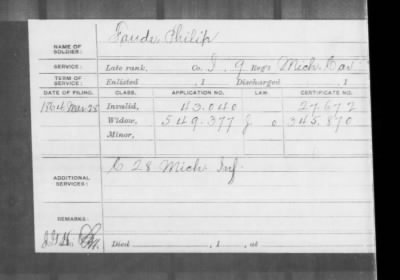 NAME OF SOLDIER: Faude, Philip
SERVICE: Late rank, Co. I, 9 Reg't Mich. Cav
TERM OF SERVICE: Enlisted , 1 Discharged , 1
DATE OF FILING. CLASS. APPLICATION NO. LAW. CERTIFICATE NO.
1864 Mar 28 Invalid, 43.040 27.672
Widow, 549.377 g o 345.870
Minor,
ADDITIONAL SERVICES: C 28 Mich Inf.
REMARKS:
Died , 1 , at